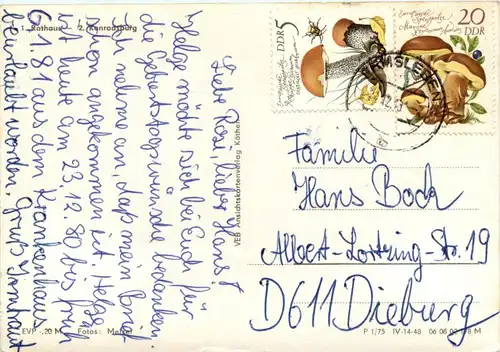 1. Rathaus 2. Konradsburg
Liebe Rose, lieber Hans!
Helge möchte sich bei Euch für
die Geburtstagswünsche bedanken.
Ich nehme an, daß mein Brief
schon angekommen ist. Helge
ist heute am 23.12.80 bis früh
6.1.81 aus dem Krankenhaus
beurlaubt worden. Gruß Irmtraut
EVP -,20 M Fotos:
VEB Ansichtskartenverlag Köthen
DDR 5
20
DDR
Familie
Hans Bock
Albert-Lortzing-Str. 19
D611 Dieburg
P 1/75 IV-14-48